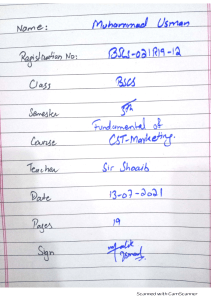 Name: Muhammad Usman
Registration No: BSCS-021R19-12
Class BSCS
Semester 5th
Course Fundamental of CST-Marketing.
Teacher Sir Shoaib
Date 13-07-2021
Pages 19
Sign
Scanned with CamScanner